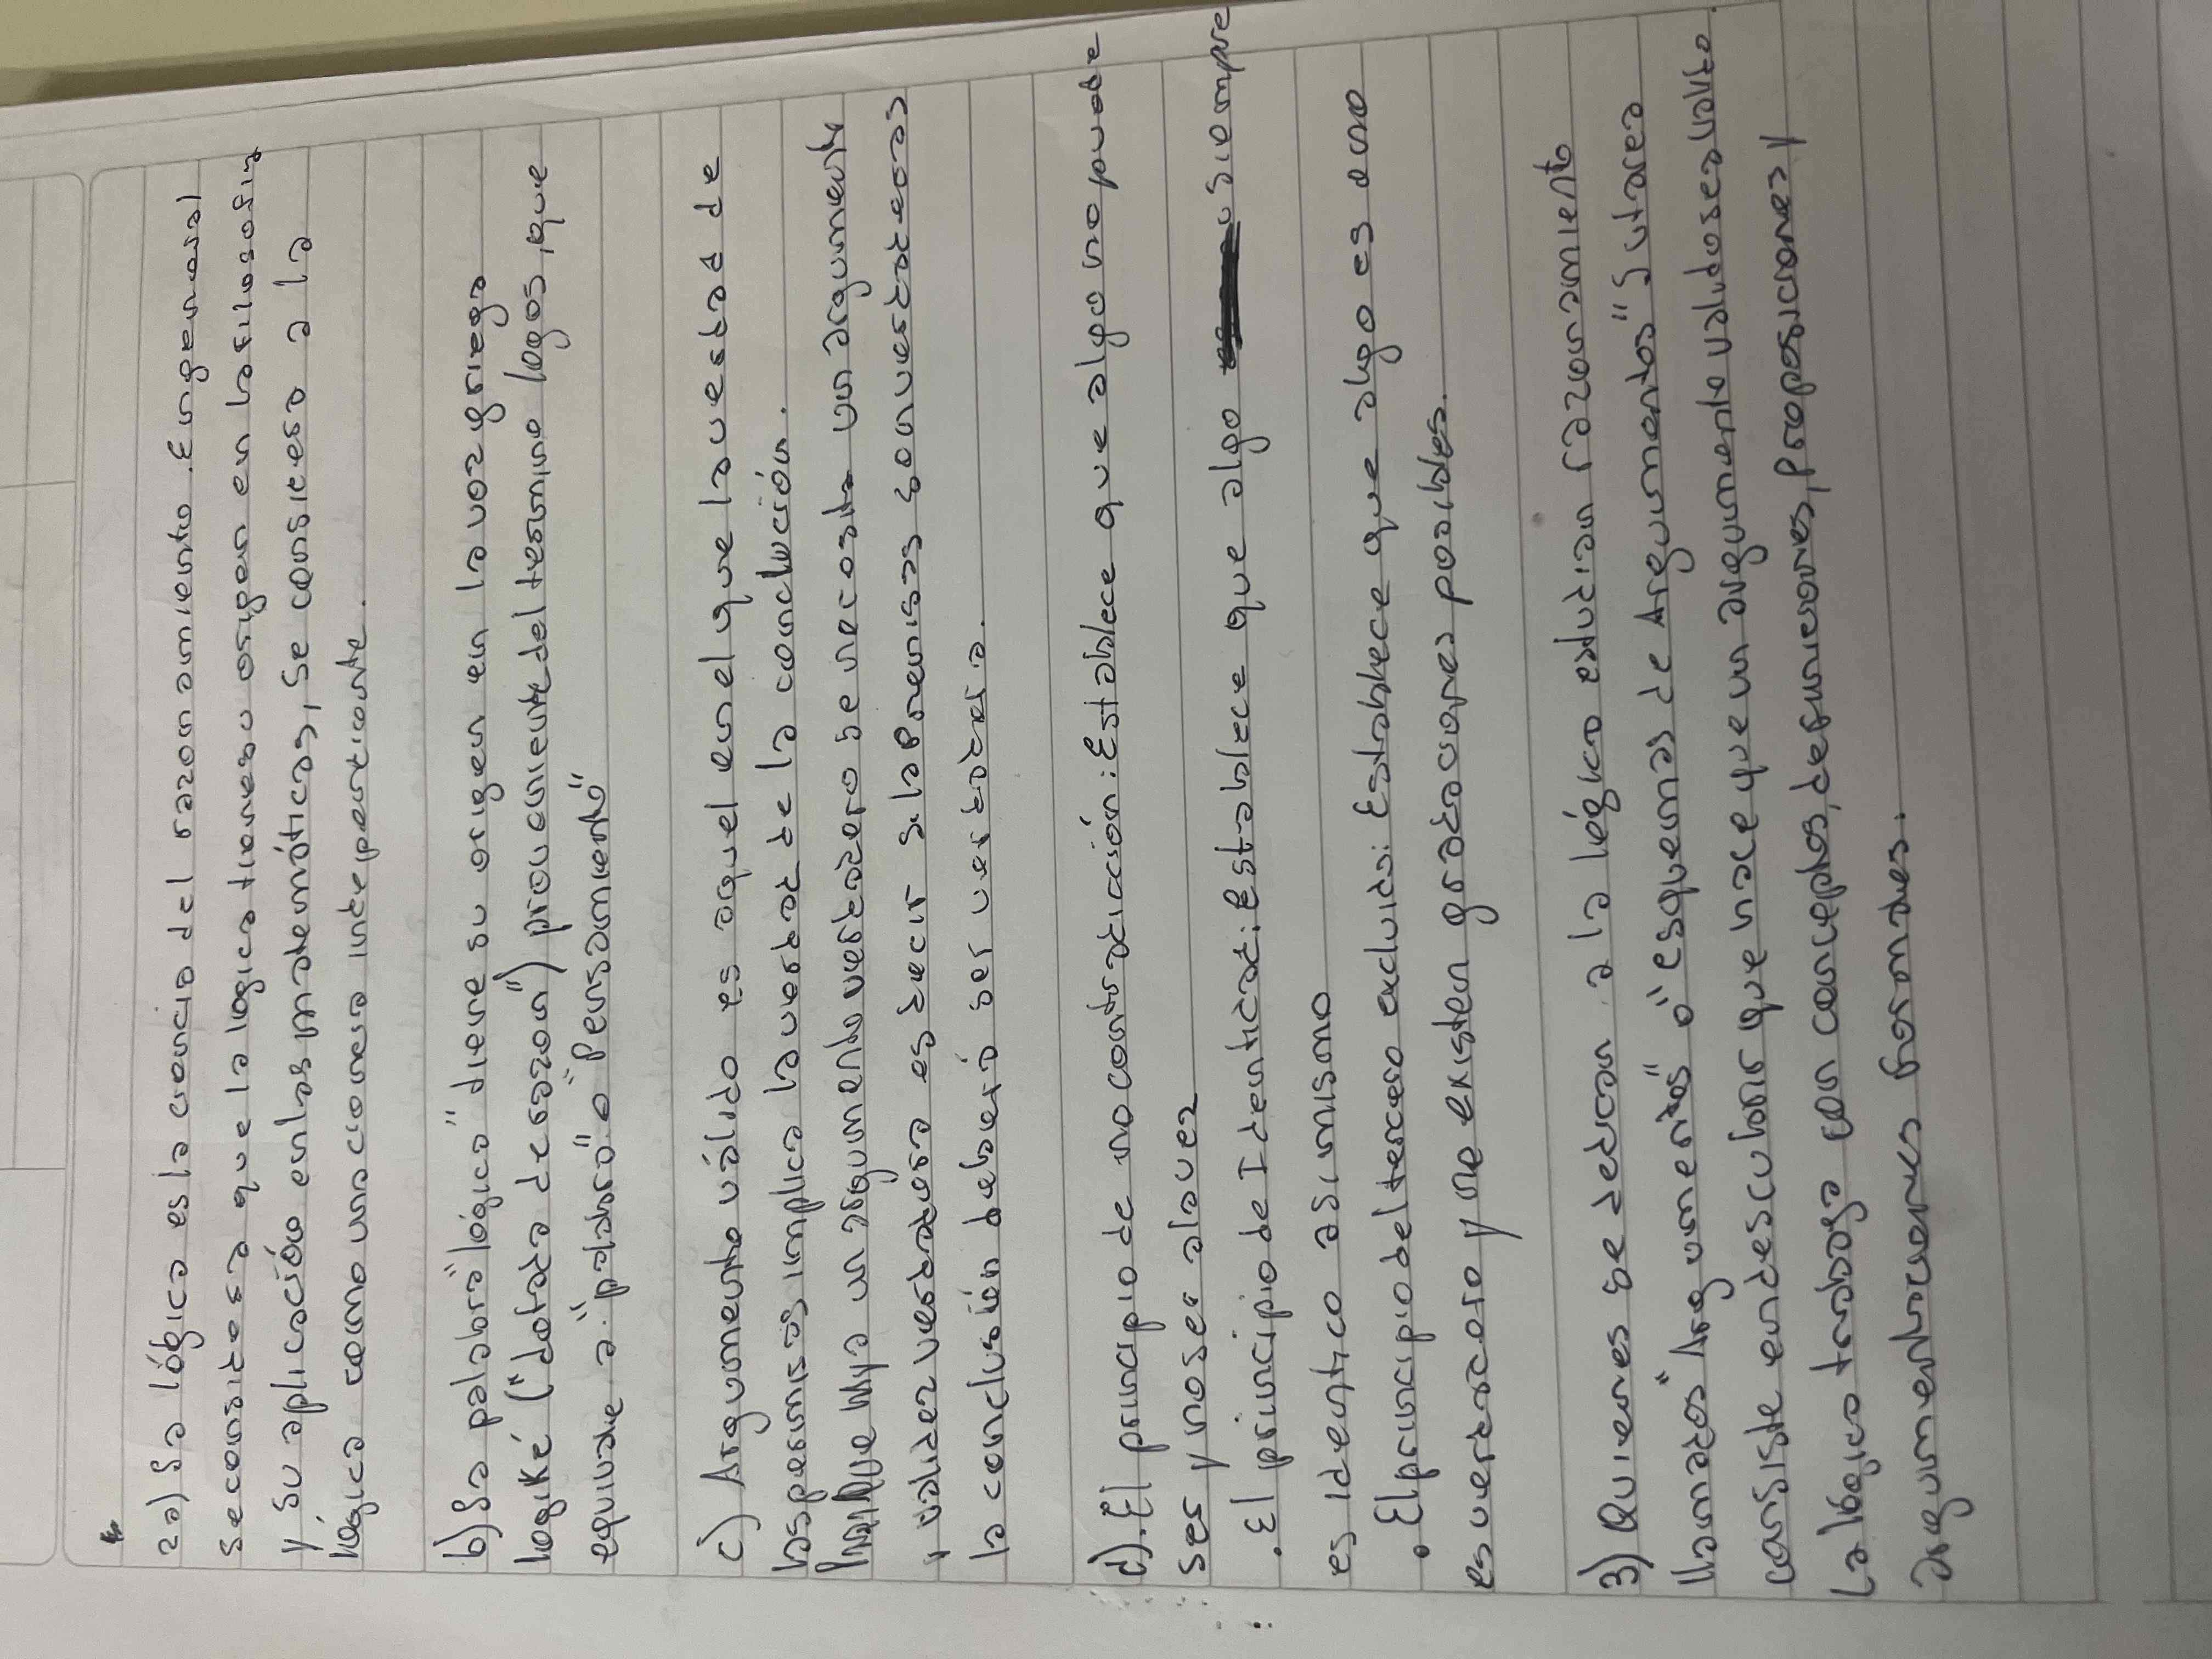 2a) La lógica es la ciencia del razonamiento. En general
se considera que la logica tiene su origen en la filosofia
y su aplicación en las matemáticas, se considera a la
lógica como una ciencia independiente.
b) La palabra "lógica" tiene su origen en la voz griega
logiké ("dotada de razon") proveniente del termino logos, que
equivale a "palabra" o "Pensamiento"
c) Argumento válido es aquel en el que la verdad de
las premisas implica la verdad de la conclución.
que un argumento verdadero se necesita un argumento
validez verdadera es decir si la Premisas son verdaderas
la conclusión deberá ser verdadera.
d) · El principio de no contradicción: Establece que algo no puede
ser y no sea a la vez
· El principio de Identidad: Establece que algo siempre
es identico a si mismo
· El principio del tercero excluido: Establece que algo es o no
es verdadero y no existen gradaciones posibles.
3) Quienes se dedican a la lógica estudian razonamiento
llamados "Argumentos" o "esquemas de Argumentos" Su tarea
consiste en descubrir que hace que un argumento valido sea valido.
La lógica trabaja con conceptos, definiciones, proposiciones y
argumentaciones formales.